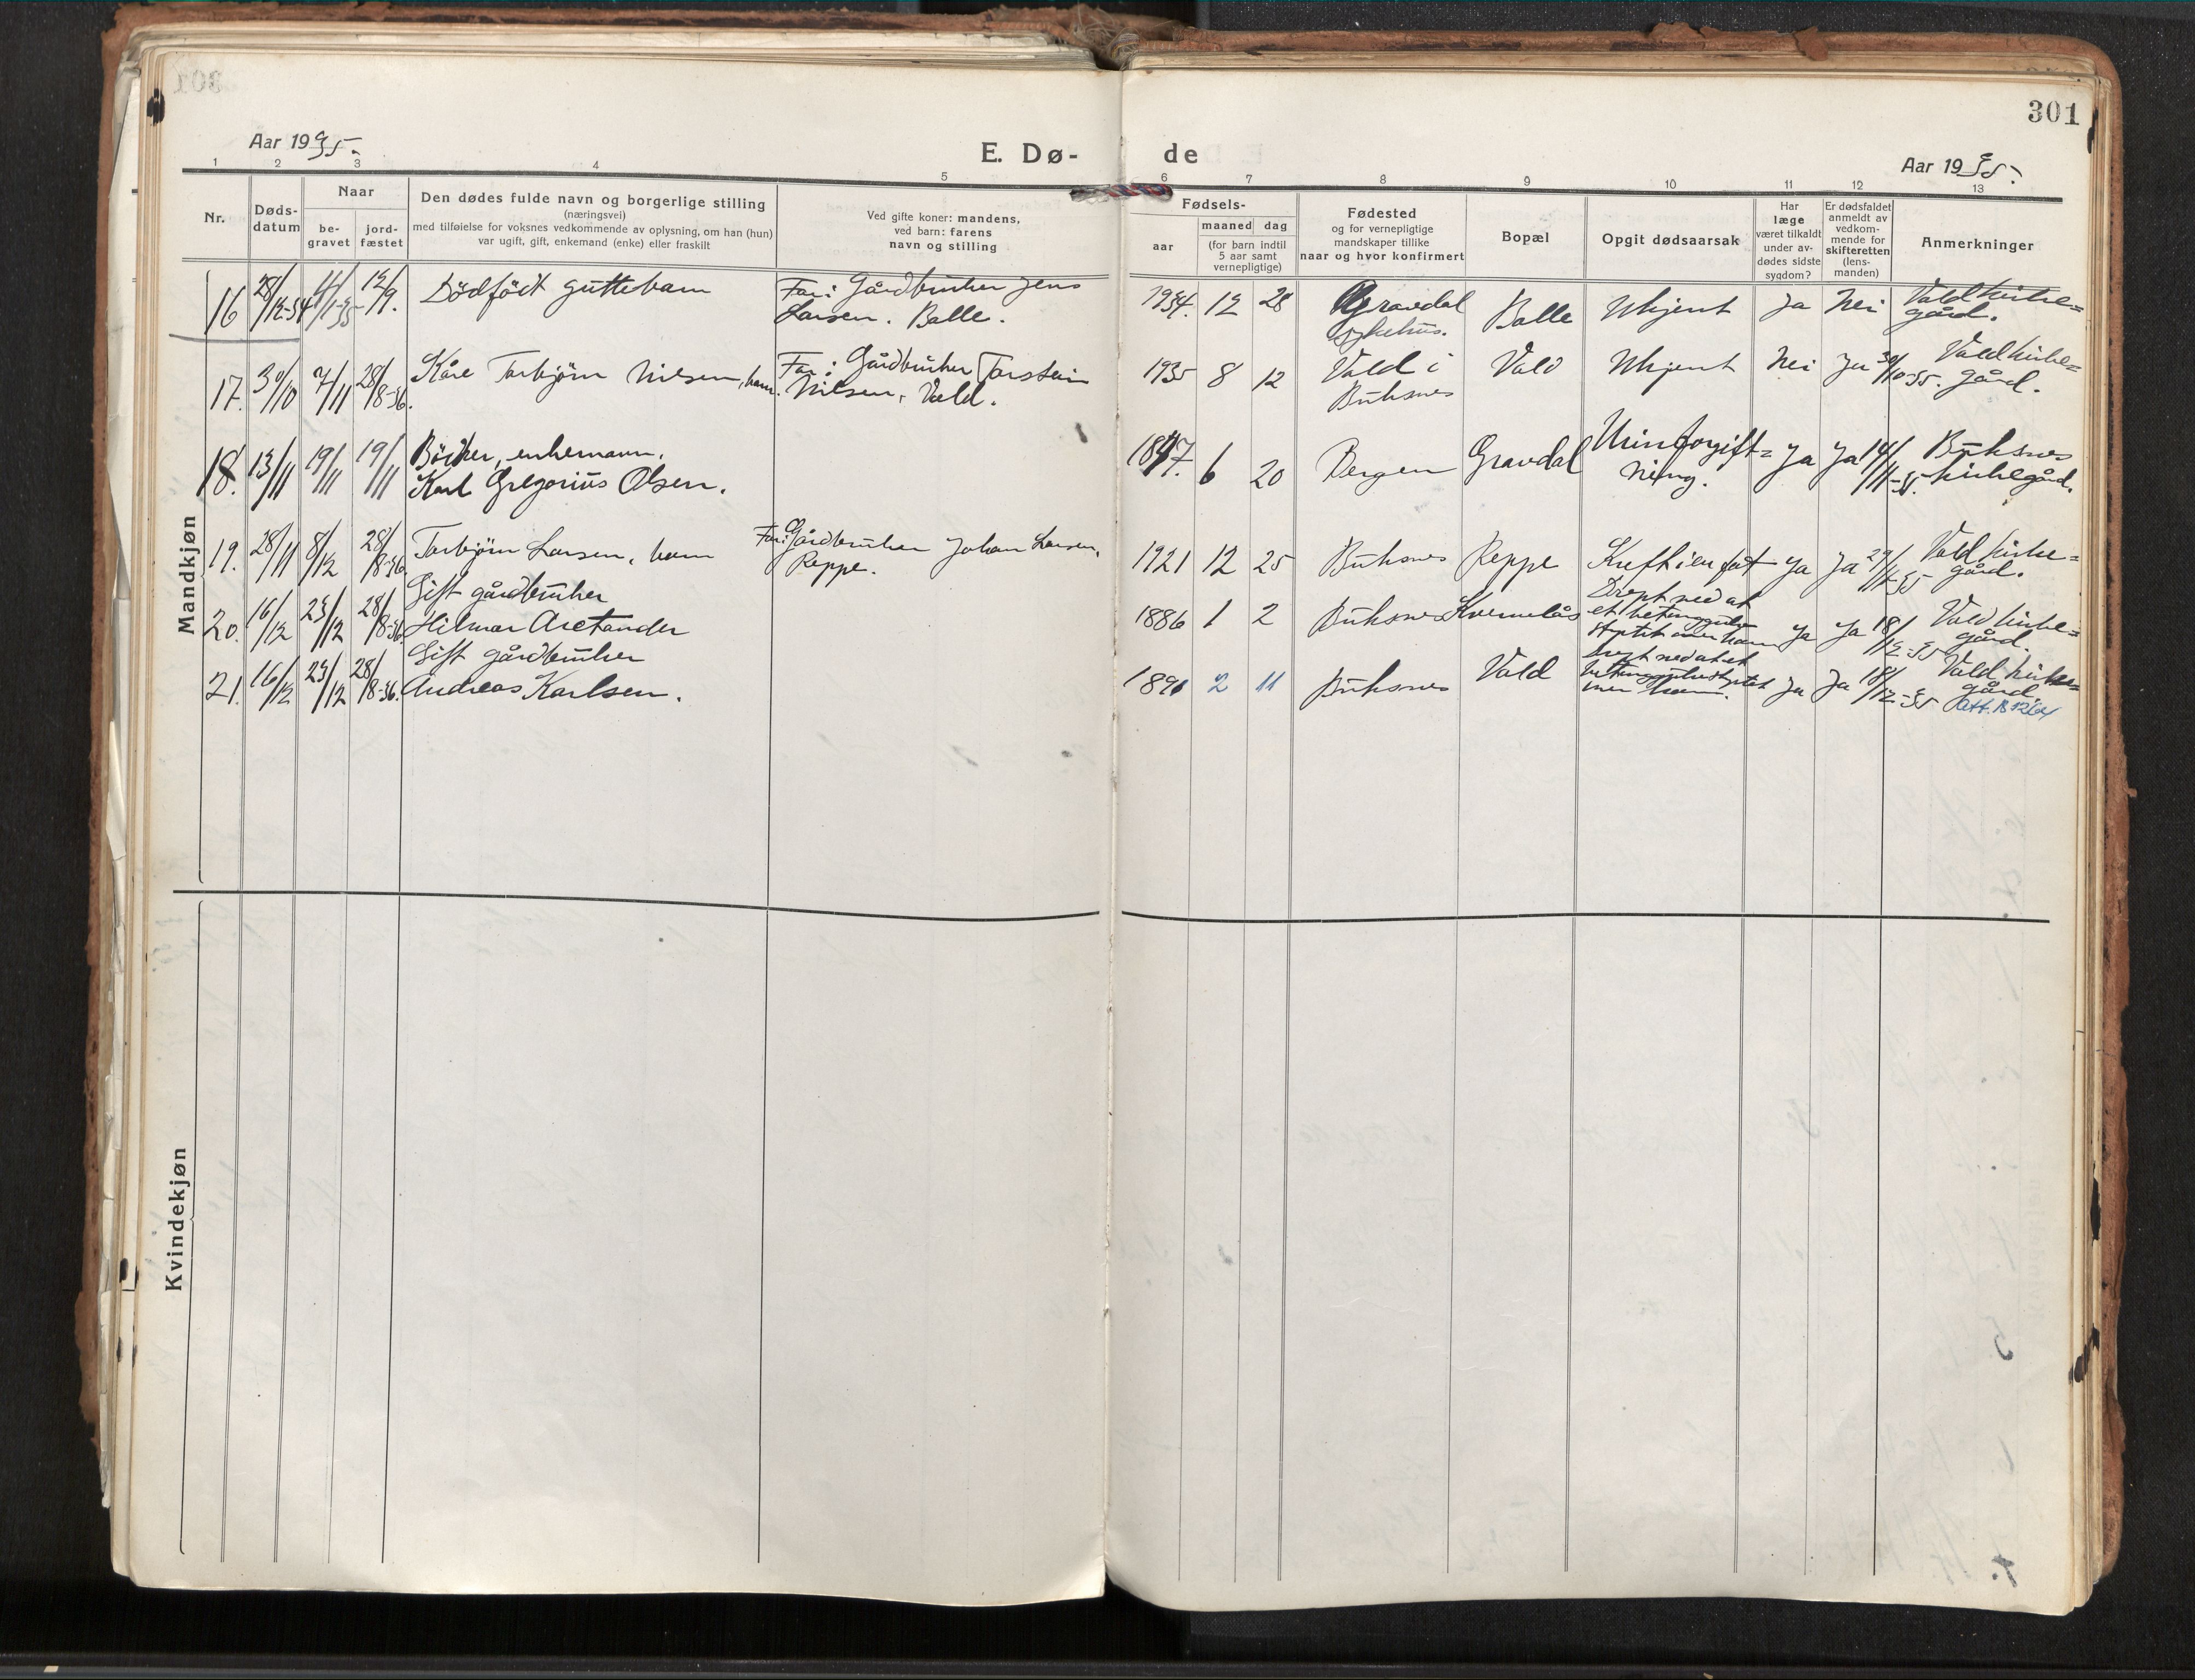 301
Aar 1935.
E. Dø-
de
Aar 1935.
1 2 3 4 5 6 7 8 9 10 11 12 13
Nr.
Døds-
datum
Naar
be-
gravet
jord-
fæstet
Den dødes fulde navn og borgerlige stilling
(næringsvei)
med tilføielse for voksnes vedkommende av oplysning, om han (hun)
var ugift, gift, enkemand (enke) eller fraskilt
Ved gifte koner: mandens,
ved barn: farens
navn og stilling
Fødsels-
aar
maaned dag
(for barn indtil
5 aar samt
vernepligtige)
Fødested
og for vernepligtige
mandskaper tillike
naar og hvor konfirmert
Bopæl
Opgit dødsaarsak
Har
læge
været tilkaldt
under av-
dødes sidste
sygdom?
Er dødsfaldet
anmeldt av
vedkom-
mende for
skifteretten
(lens-
manden)
Anmerkninger
Mandkjøn
16 28/12-34 4/1-35 12/9. Dödfödt guttebarn Far: Gårdbruker Jens
Larsen. Balle.
1934. 12 28 Gravdal
sykehus. Balle Ukjent Ja Nei Vald kirke=
gård.
17. 30/10 7/11 28/8-36. Kåre Torbjörn Nilsen, barn. Far: Gårdbruker Torstein
Nilsen, Vald.
1935 8 12 Vold i
Buksnes Vald Ukjent Nei Ja 30/10-35. Vald kirke=
gård.
18. 13/11 19/11 19/11 Böcker, enkemann.
Karl Gregorius Olsen.
1847. 6 20 Bergen Gravdal Urinforgift=
ning. Ja Ja 14/11-35. Buksnes
kirkegård.
19. 28/11 8/12 28/8-36 Torbjörn Larsen, barn Far: Gårdbruker Johan Larsen,
Reppe.
1921 12 25 Buksnes Reppe Kreft i en fot Ja Ja 29/11-35 Vold kirke=
gård.
20. 16/12 23/12 28/8-36 Gift gårdbruker
Hilmar Arctander
1886 1 2 Buksnes Kvernelås Drept ved at
et betonggulv
styrtet over ham Ja Ja 18/12-35 Vald kirke=
gård.
21. 16/12 23/12 28/8-36. Gift gårdbruker
Andreas Karlsen.
1890 2 11 Buksnes Vald Drept ved at et
betonggulv styrtet
over ham. Ja Ja 18/12-35 Vald kirke=
gård.
att. B 12/64
Kvindekjøn